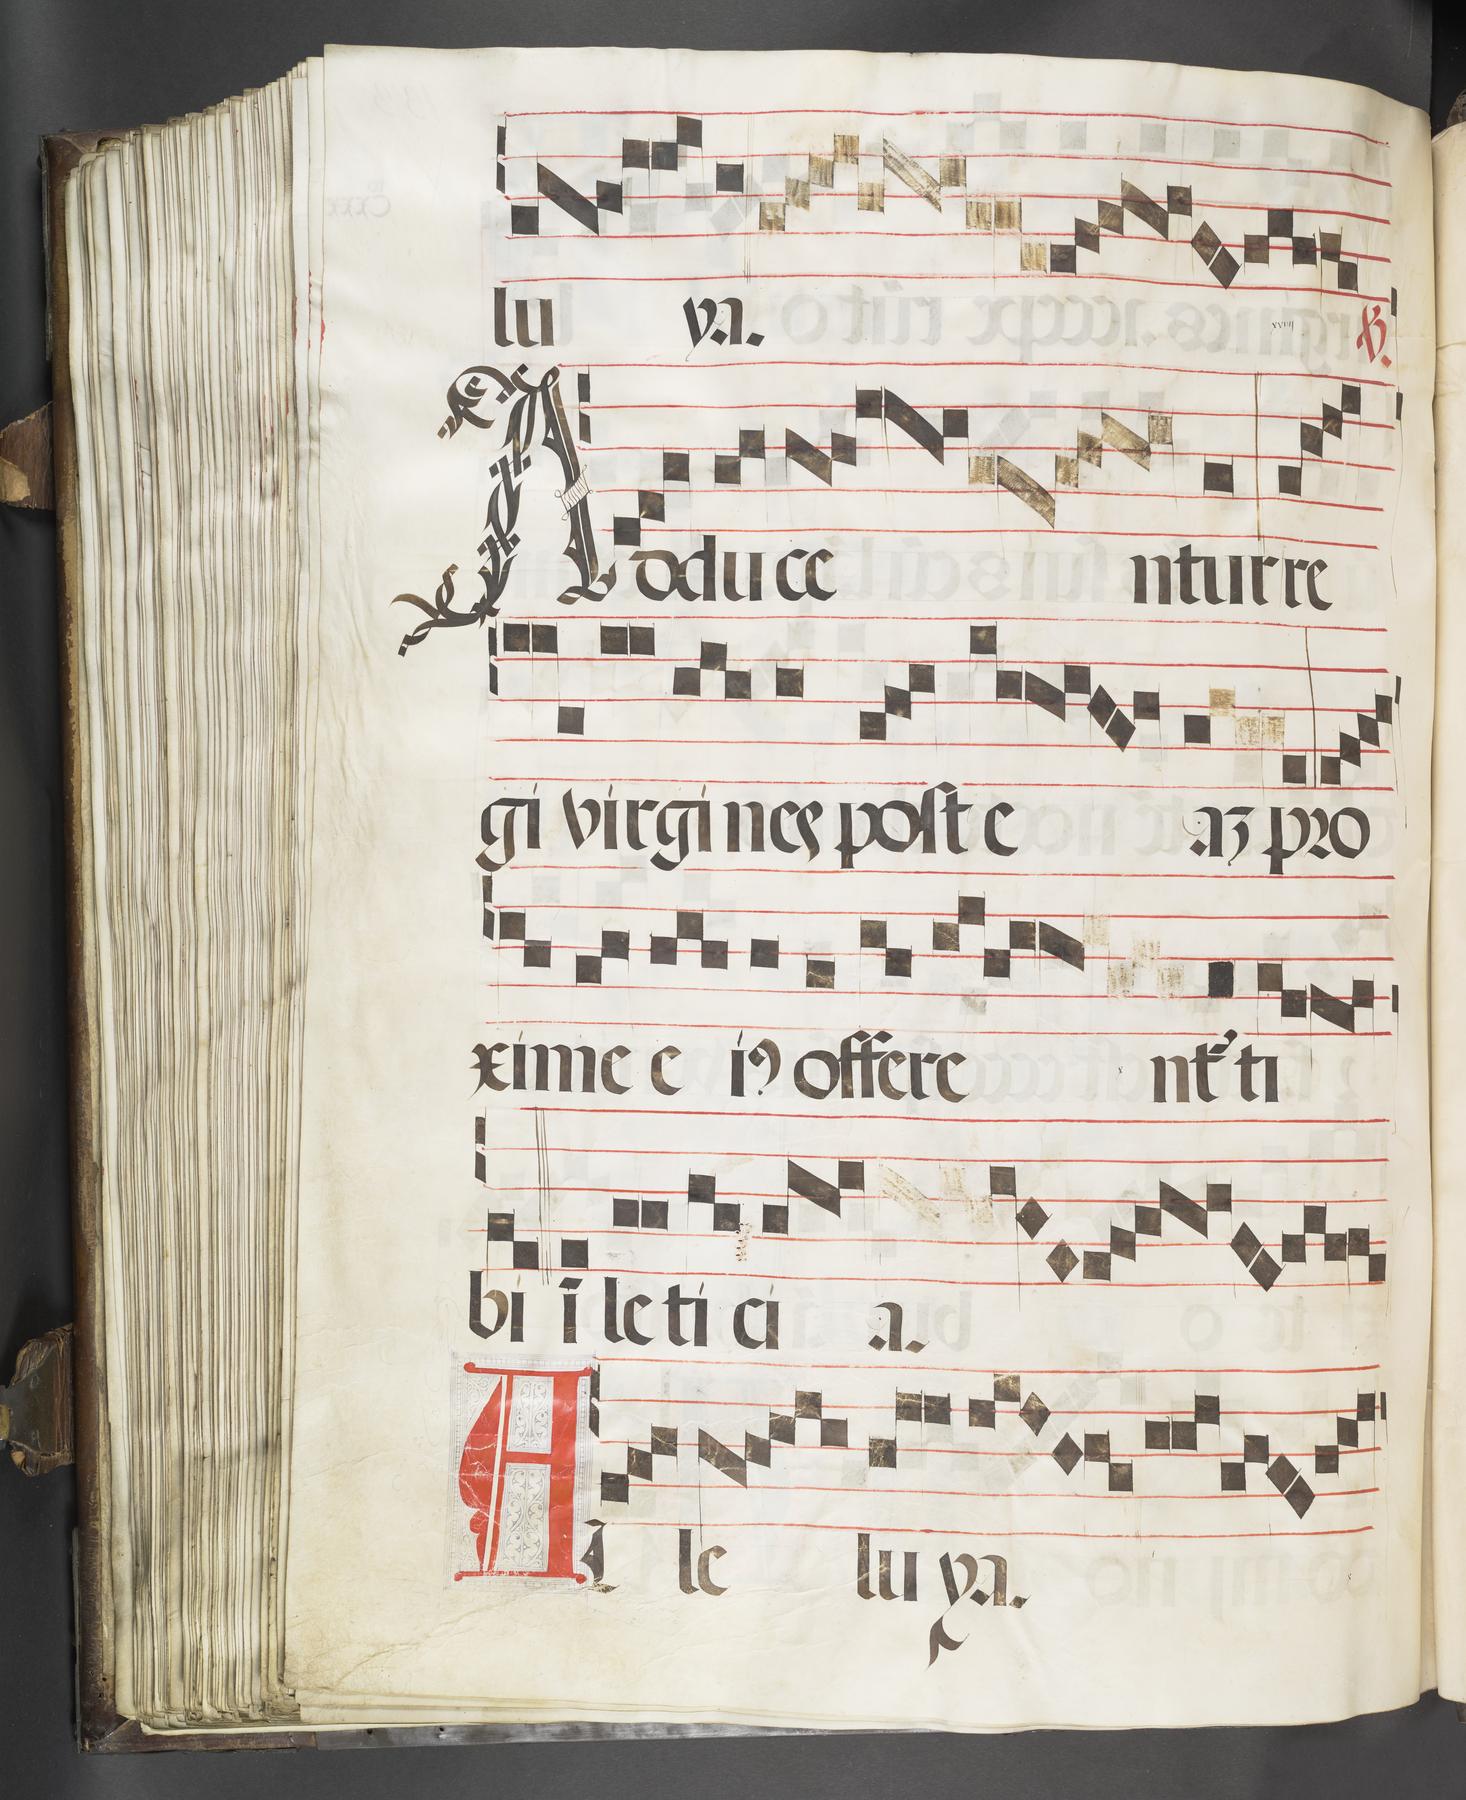 lu ya. ℣.
Adduce nturre
gi virgines poste aꝫ pro
xime e iꝰ offere nt᷑ ti
bi ī leti ci a.
Al le lu ya.